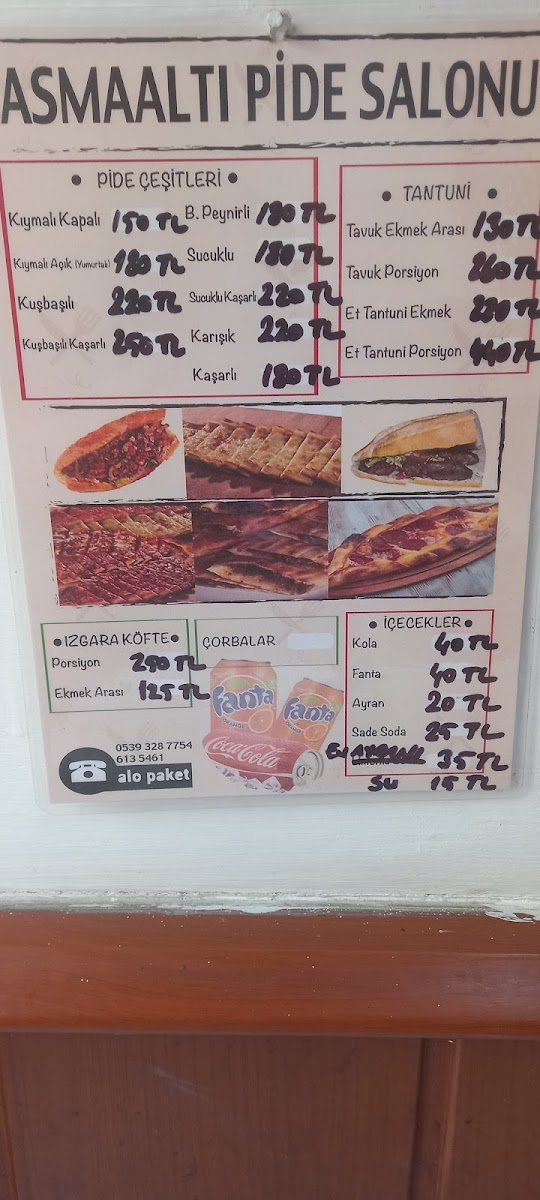 ASMAALTI PİDE SALONU
• PİDE ÇEŞİTLERİ •
Kıymalı Kapalı 150 TL
Kıymalı Açık (Yumurtalı) 180 TL
Kuşbaşılı 220 TL
Kuşbaşılı Kaşarlı 250 TL
B. Peynirli 180 TL
Sucuklu 180 TL
Sucuklu Kaşarlı 220 TL
Karışık 220 TL
Kaşarlı 180 TL
• TANTUNİ •
Tavuk Ekmek Arası 130 TL
Tavuk Porsiyon 260 TL
Et Tantuni Ekmek TL
Et Tantuni Porsiyon 440 TL
• IZGARA KÖFTE •
Porsiyon 250 TL
Ekmek Arası 125 TL
ÇORBALAR
• İÇECEKLER •
Kola 40 TL
Fanta 40 TL
Ayran 20 TL
Sade Soda 25 TL
35 TL
Su 15 TL
Fanta
ORANGE
Fanta
Coca-Cola
0539 328 7754
613 5461
alo paket